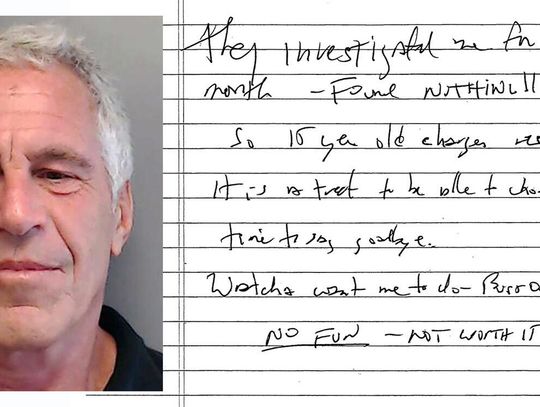 they investigated me for
month - Found NOTHING!!
So 15 year old charges
It is a treat to be able to
time to say goodbye.
want me to do -
NO FUN - NOT WORTH IT